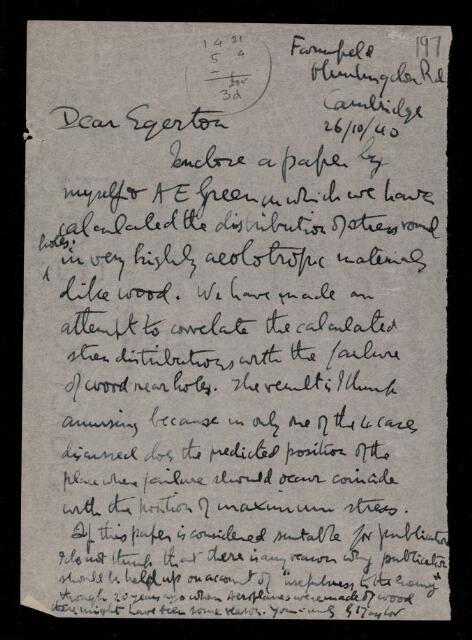 197
14 21
5 9
3d
Farmfield
Huntingdon Rd
Cambridge
26/10/40
Dear Egerton
I enclose a paper by
myself & A E Green in which we have
calculated the distribution of stress round
holes
in very highly aeolotropic materials
like wood. We have made an
attempt to correlate the calculated
stress distributions with the failure
of wood near holes. The result is I think
amusing because in only one of the 4 cases
discussed does the predicted position of the
place where failure should occur coincide
with the position of maximum stress.
If this paper is considered suitable for publication
I do not think that there is any reason why publication
should be held up on account of "usefulness to the enemy"
though 20 years ago when Aeroplanes were made of wood
there might have been some reason. Yours G I Taylor